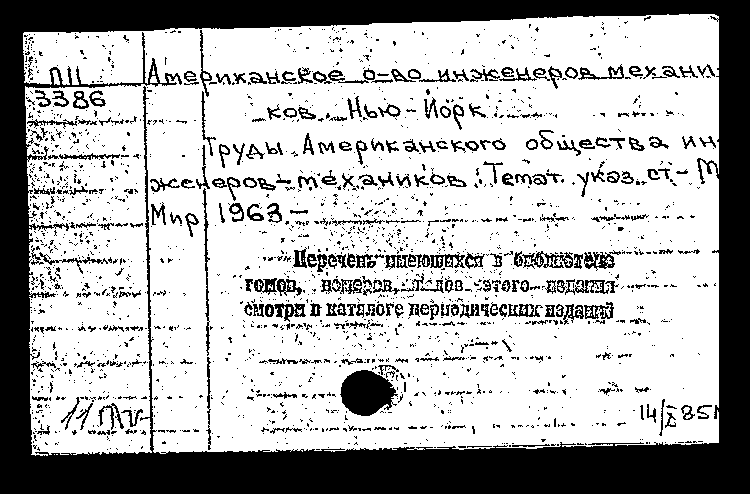 П11 Американское о-во инженеров механи-
3386
ков. Нью-Йорк
Труды Американского общества ин-
женеров-механиков: Темат. указ. ст.- М
Мир, 1963.-
Перечень имеющихся в библиотеке
томов, номеров, годов этого издания
смотри в каталоге периодических изданий
14/X 85